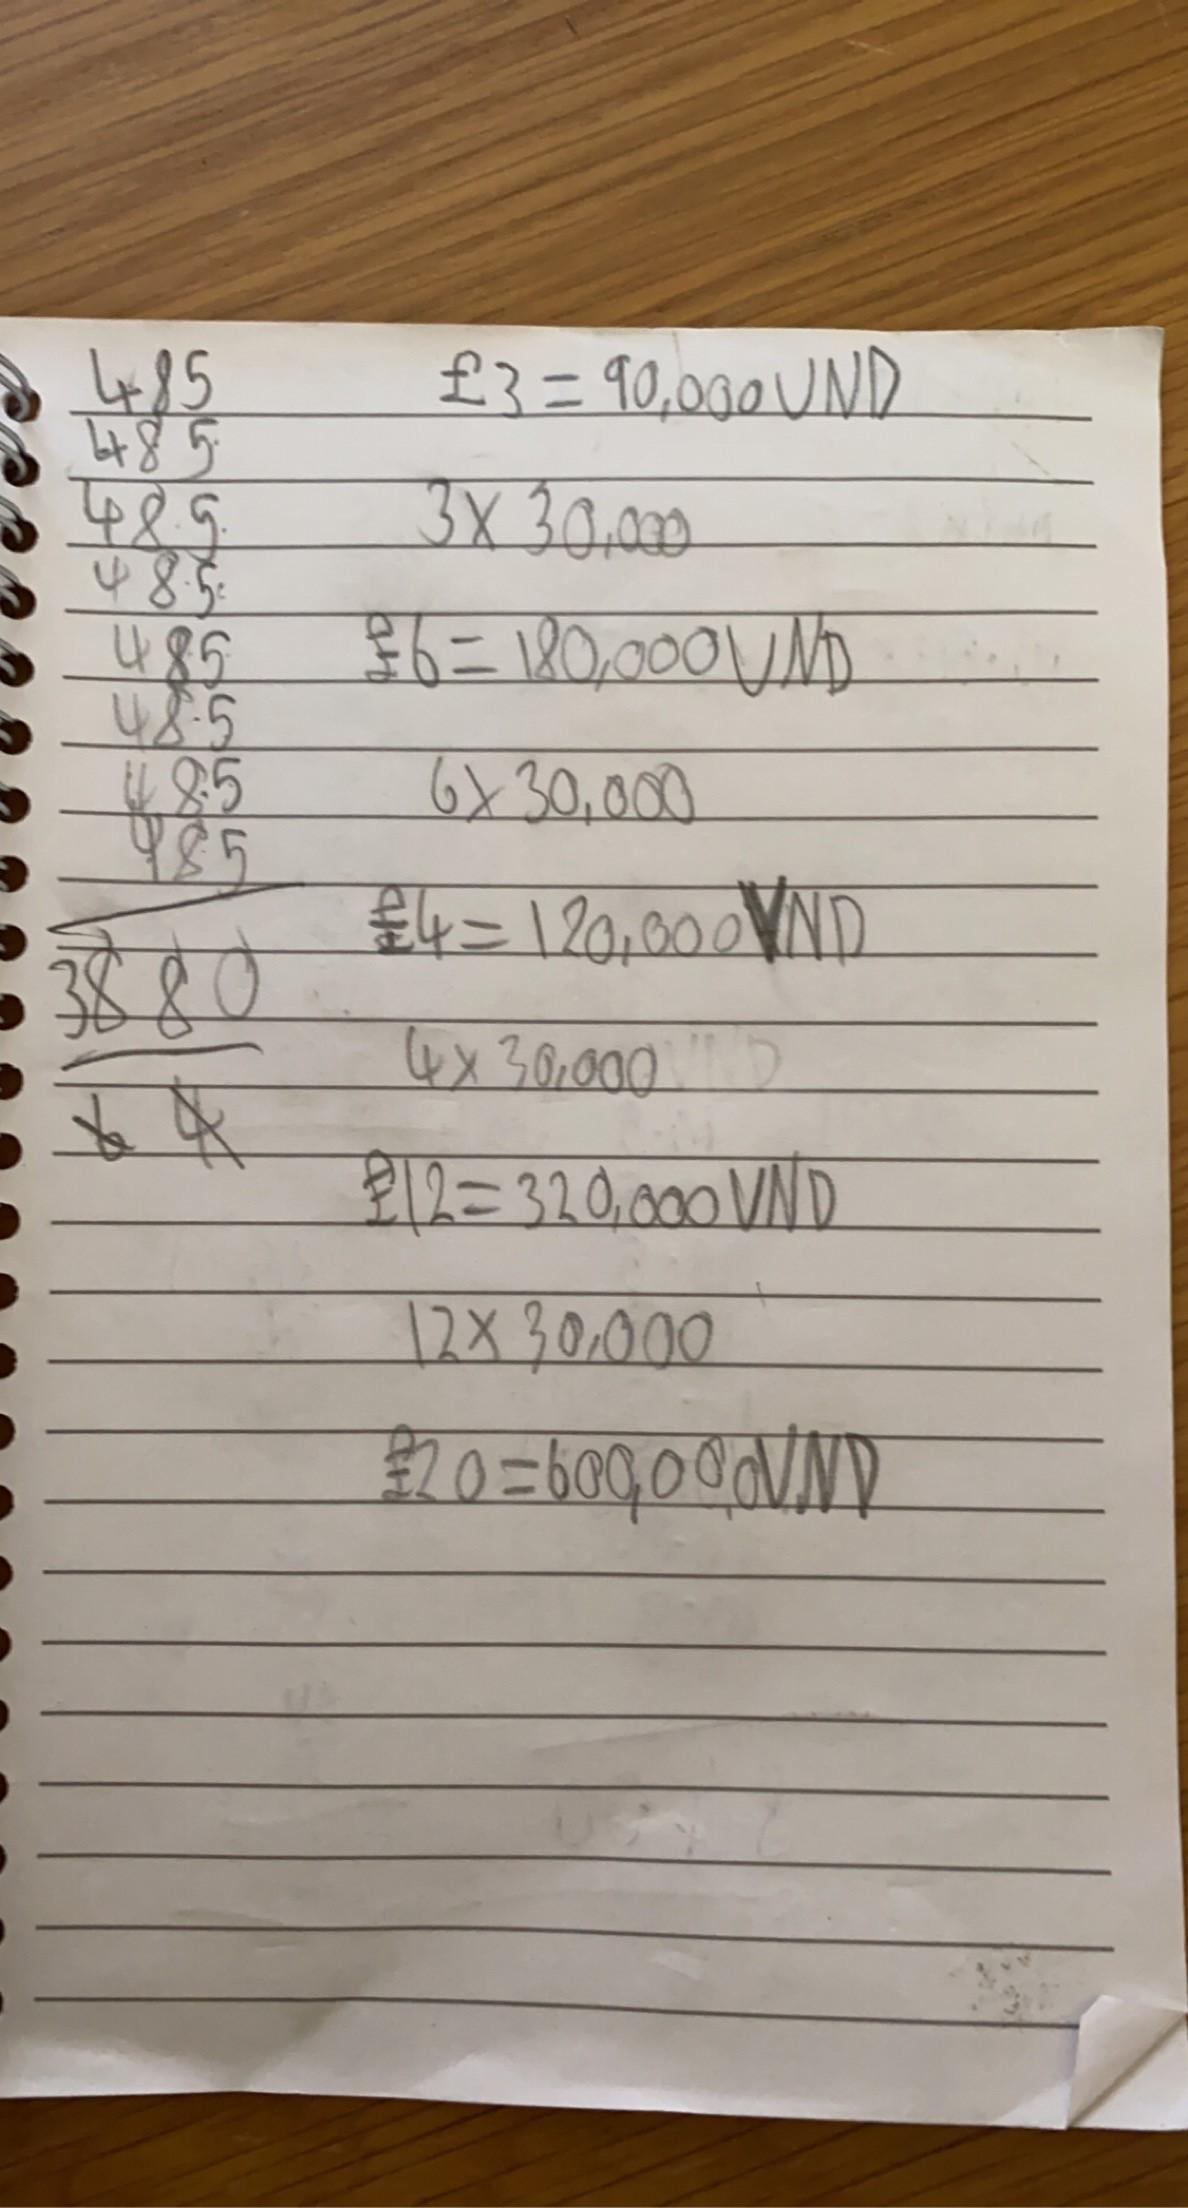 485
485
485
485
485
485
485
485
3880
6 4
£3 = 90,000 VND
3 x 30,000
£6 = 180,000 VND
6 x 30,000
£4 = 120,000 VND
4 x 30,000
£12 = 320,000 VND
12 x 30,000
£20 = 600,000 VND